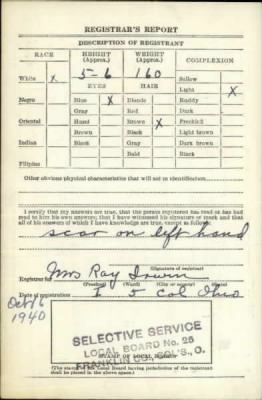 REGISTRAR'S REPORT
DESCRIPTION OF REGISTRANT
RACE HEIGHT (Approx.) WEIGHT (Approx.) COMPLEXION
White X 5-6 160 Sallow
EYES HAIR Light X
Negro Blue X Blonde Ruddy
Gray Red Dark
Oriental Hazel Brown X Freckled
Brown Black Light brown
Indian Black Gray Dark brown
Bald Black
Filipino
Other obvious physical characteristics that will aid in identification
I certify that my answers are true; that the person registered has read or has had
read to him his own answers; that I have witnessed his signature or mark and that
all of his answers of which I have knowledge are true, except as follows:
scar on left hand
Mrs Ray Irwin
(Signature of registrar)
Registrar for I 5 Col Ohio
(Precinct) (Ward) (City or county) (State)
Date of registration Oct 16
1940
SELECTIVE SERVICE
LOCAL BOARD No. 25
FRANKLIN CO., COL'S., O.
STAMP OF LOCAL BOARD
(The stamp of the Local Board having jurisdiction of the registrant
shall be placed in the above space.)